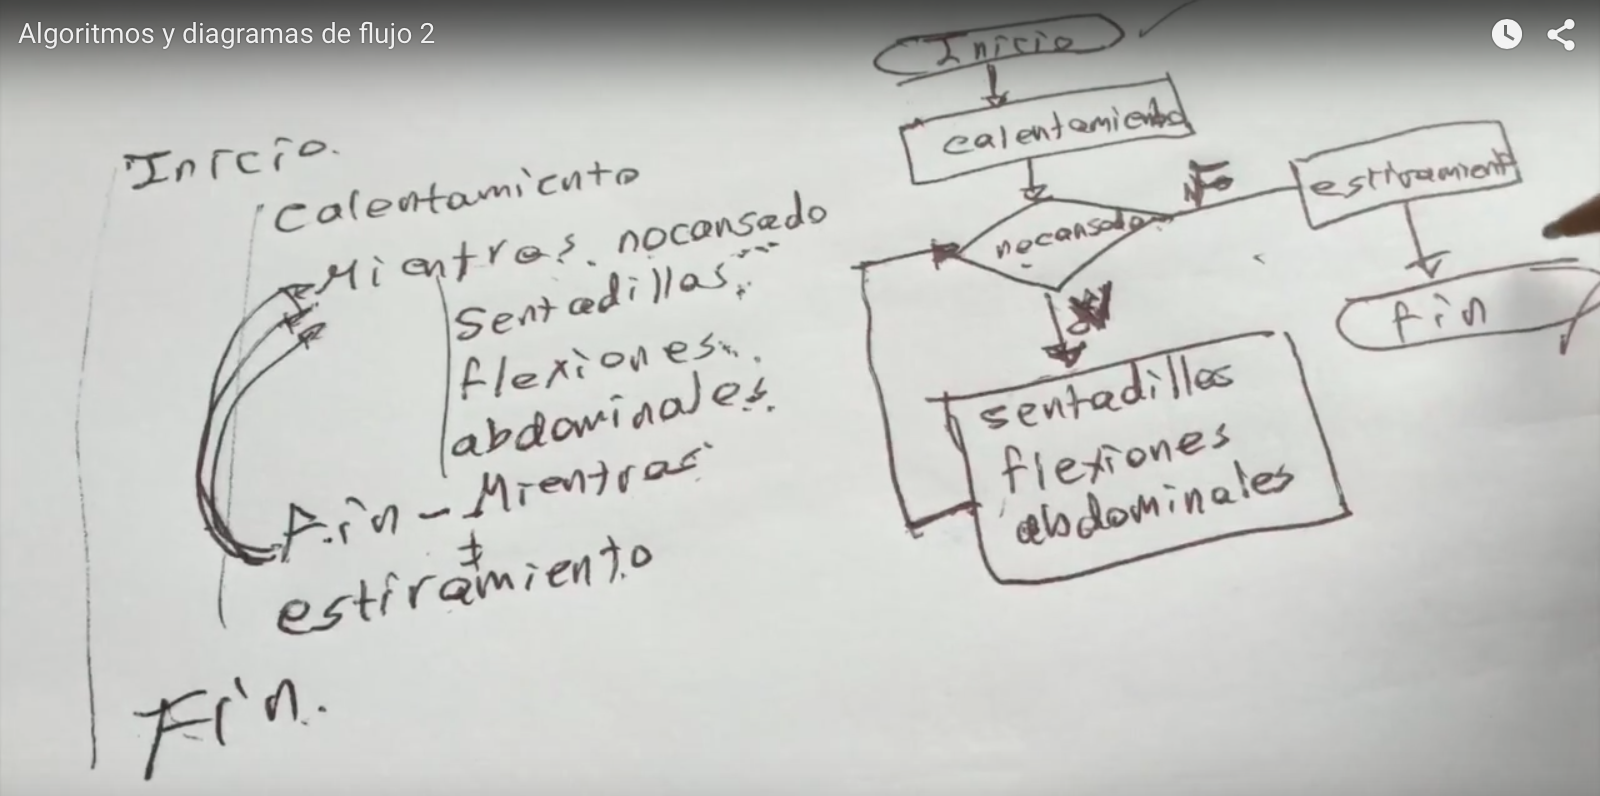 Algoritmos y diagramas de flujo 2
Inicio.
calentamiento
Mientras nocansado
sentadillas
flexiones
abdominales
Fin-Mientras
estiramiento
Fin.
Inicio
calentamiento
nocansado
F
estiramient
fin
sentadilles
flexiones
abdominales